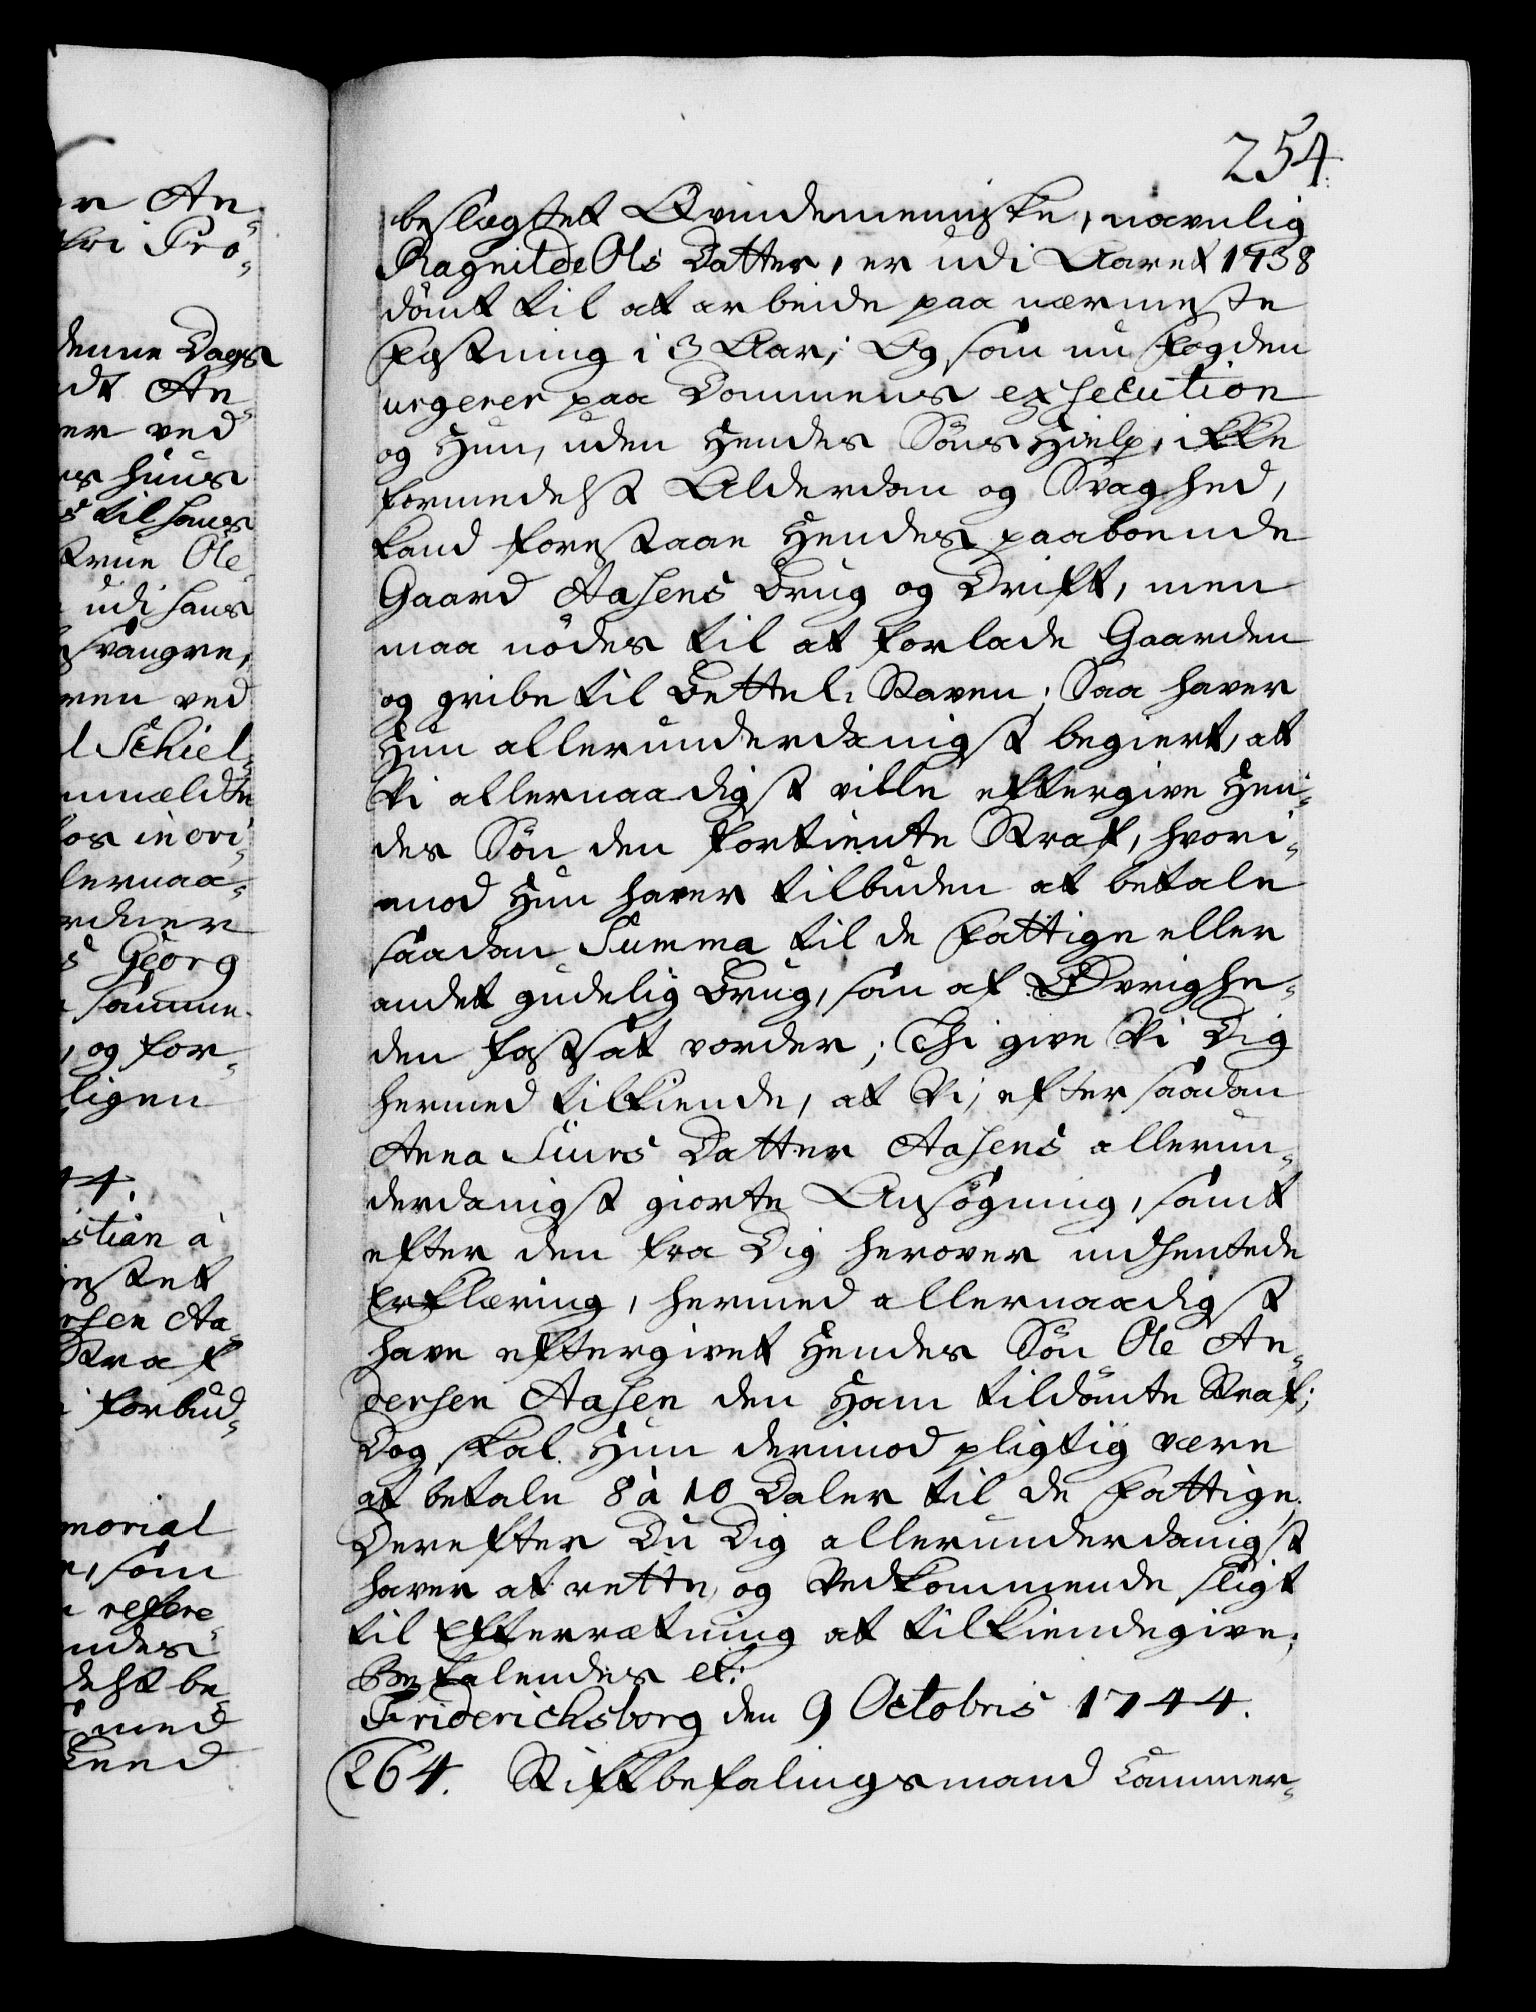 254.
beslægtet Qvindemenniske, navnlig
Ragnilde Ols Datter, er udi Aaret 1738
dömt til at arbeide paa nærmeste
Fæstning i 3 Aar; Og som nu Fogden
urgerer paa Dommens exsecution
og Hun, uden Hendes Söns Hielp, ikke
formedelst Alderdom og Svaghed,
kand forestaae Hendes paaboende
Gaard Aasens Brug og Drift, men
maa nödes til at forlade Gaarden
og gribe til Bettel-Staven; Saa haver
Hun allerunderdanigst begiert, at
Vi allernaadigst ville eftergive Hen-
des Sön den fortiente Straf, hvori-
mod Hun haver tilbuden at betale
saadan Summa til de Fattige eller
andet gudelig Brug, som af Övrighe-
den fastsat vorder; Thi give Vi Dig
hermed tilkiende, at Vi, efter saadan
Anna Siurs Datter Aasens allerun-
derdanigst giorte Ansögning, samt
efter den fra Dig herover indhentede
Erklæring, hermed allernaadigst
have eftergivet Hendes Sön Ole An-
dersen Aasen den Ham tildömte Straf;
Dog skal Hun derimod pligtig være
at betale 8 à 10 Daler til de Fattige.
Derefter Du Dig allerunderdanigst
haver at rette, og Vedkommende sligt
til Efterrætning at tilkiendegive;
Befalendes etc:
Friderichsborg den 9 Octobris 1744.
264. Stiftbefalingsmand Cammer-
er An-
fri Pro-
denne Dags
dt An-
er ved
es huus
s til hans
Ole
udi hans
svangre,
ren ved
l Schiel-
nmeldte
os in ori-
lernaa-
s Georg
samme
, og for-
ligen
44.
istian à
rsen Aa-
Straf
i forbud-
morial
e, som
refere-
ndes
delst be-
med